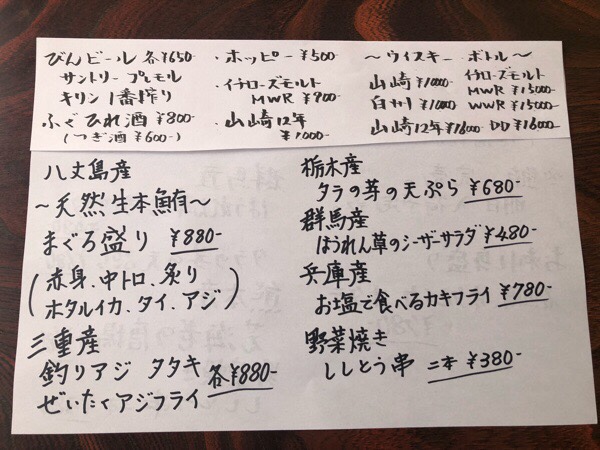 びんビール 各¥650
サントリー プレモル
キリン 1番搾り
ふぐひれ酒 ¥800
(つぎ酒 ¥600-)
・ホッピー ¥500
・イチローズモルト
MWR ¥900
・山崎12年
¥1000-
〜ウイスキー ボトル〜
山崎 ¥11000
白州 ¥11000
山崎12年 ¥16000
イチローズモルト
MWR ¥15000
WWR ¥15000-
DD ¥16000
八丈島産
〜天然生本鮪〜
まぐろ盛り ¥880-
(赤身、中トロ、炙り
ホタルイカ、タイ、アジ)
三重産
釣りアジ タタキ
ぜいたくアジフライ
各¥880-
栃木産
タラの芽の天ぷら ¥680-
群馬産
ほうれん草のシーザーサラダ ¥480-
兵庫産
お塩で食べるカキフライ ¥780-
野菜焼き
ししとう串 二本 ¥380-